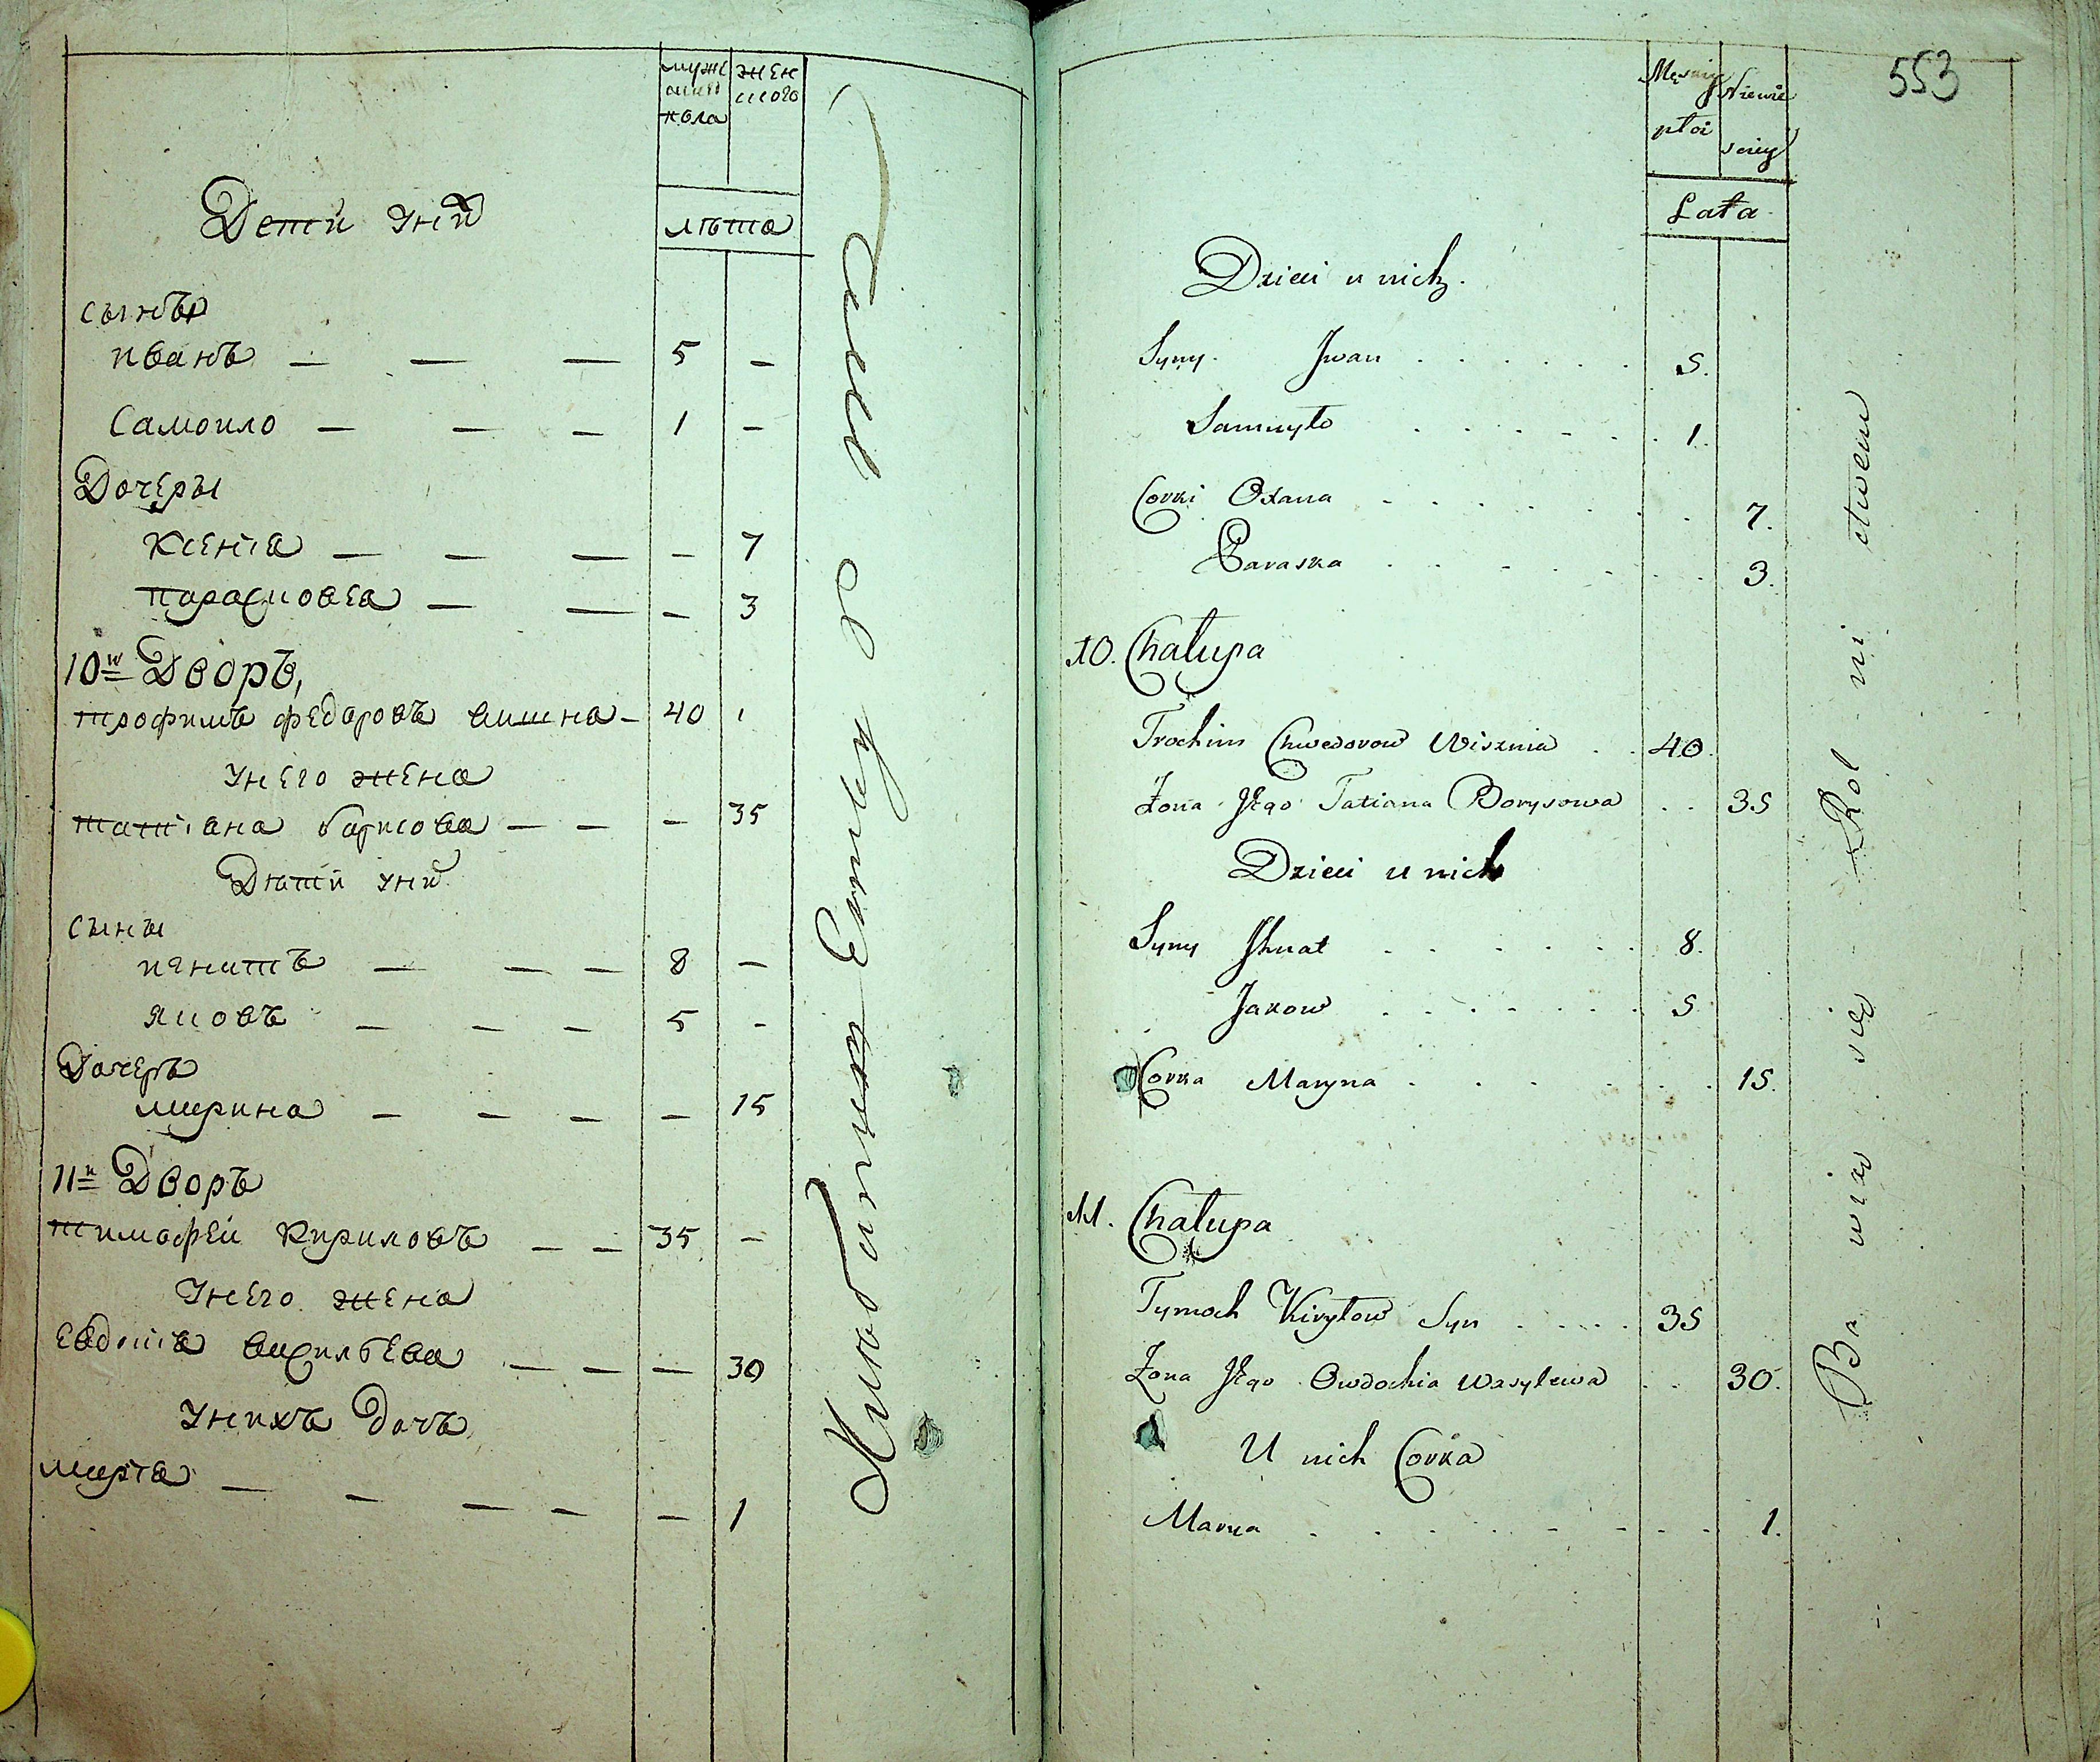 мужескаго пола
женского
лѣта
Дети у ний
сыновъя
иванъ — — — 5 —
Самоило — — — 1 —
Дочеры
Ксения — — — — 7
парасковея — — — 3
10й Дворъ,
трофимъ федоровъ вишня — 40
У него жена
татиана борисова — — — 35
Дѣти у ний
сыны
игнатъ — — — 8 —
яковъ — — — 5 —
Дочеръ
марина — — — — 15
11й Дворъ
тимофей Кириловъ — — 35 —
У него жена
Евдокия василъева — — — 30
У нихъ дочъ
мария — — — — — 1
553
płci
Lata
Dzieci u nich.
Syny. Jwan . . . . . . 5.
Samuyło . . . . . . 1.
Corki Oxana . . . . . . 7.
Paraska . . . . . . 3.
10. Chałupa
Trochim Chwedorow Wisznia . . 40.
Żona Jego Tatiana Borysowa . . 35
Dzieci u nich
Syny Jhnat . . . . . . 8.
Jakow . . . . . . . 5
Corka Maryna . . . . . . 15.
11. Chałupa
Tymoch Kiryłow Syn . . . . 35
Żona Jego Owdochia Wasylewa . . 30.
U nich Corka
Marya . . . . . . . . 1.
Ba wia się Rol ni ctwem